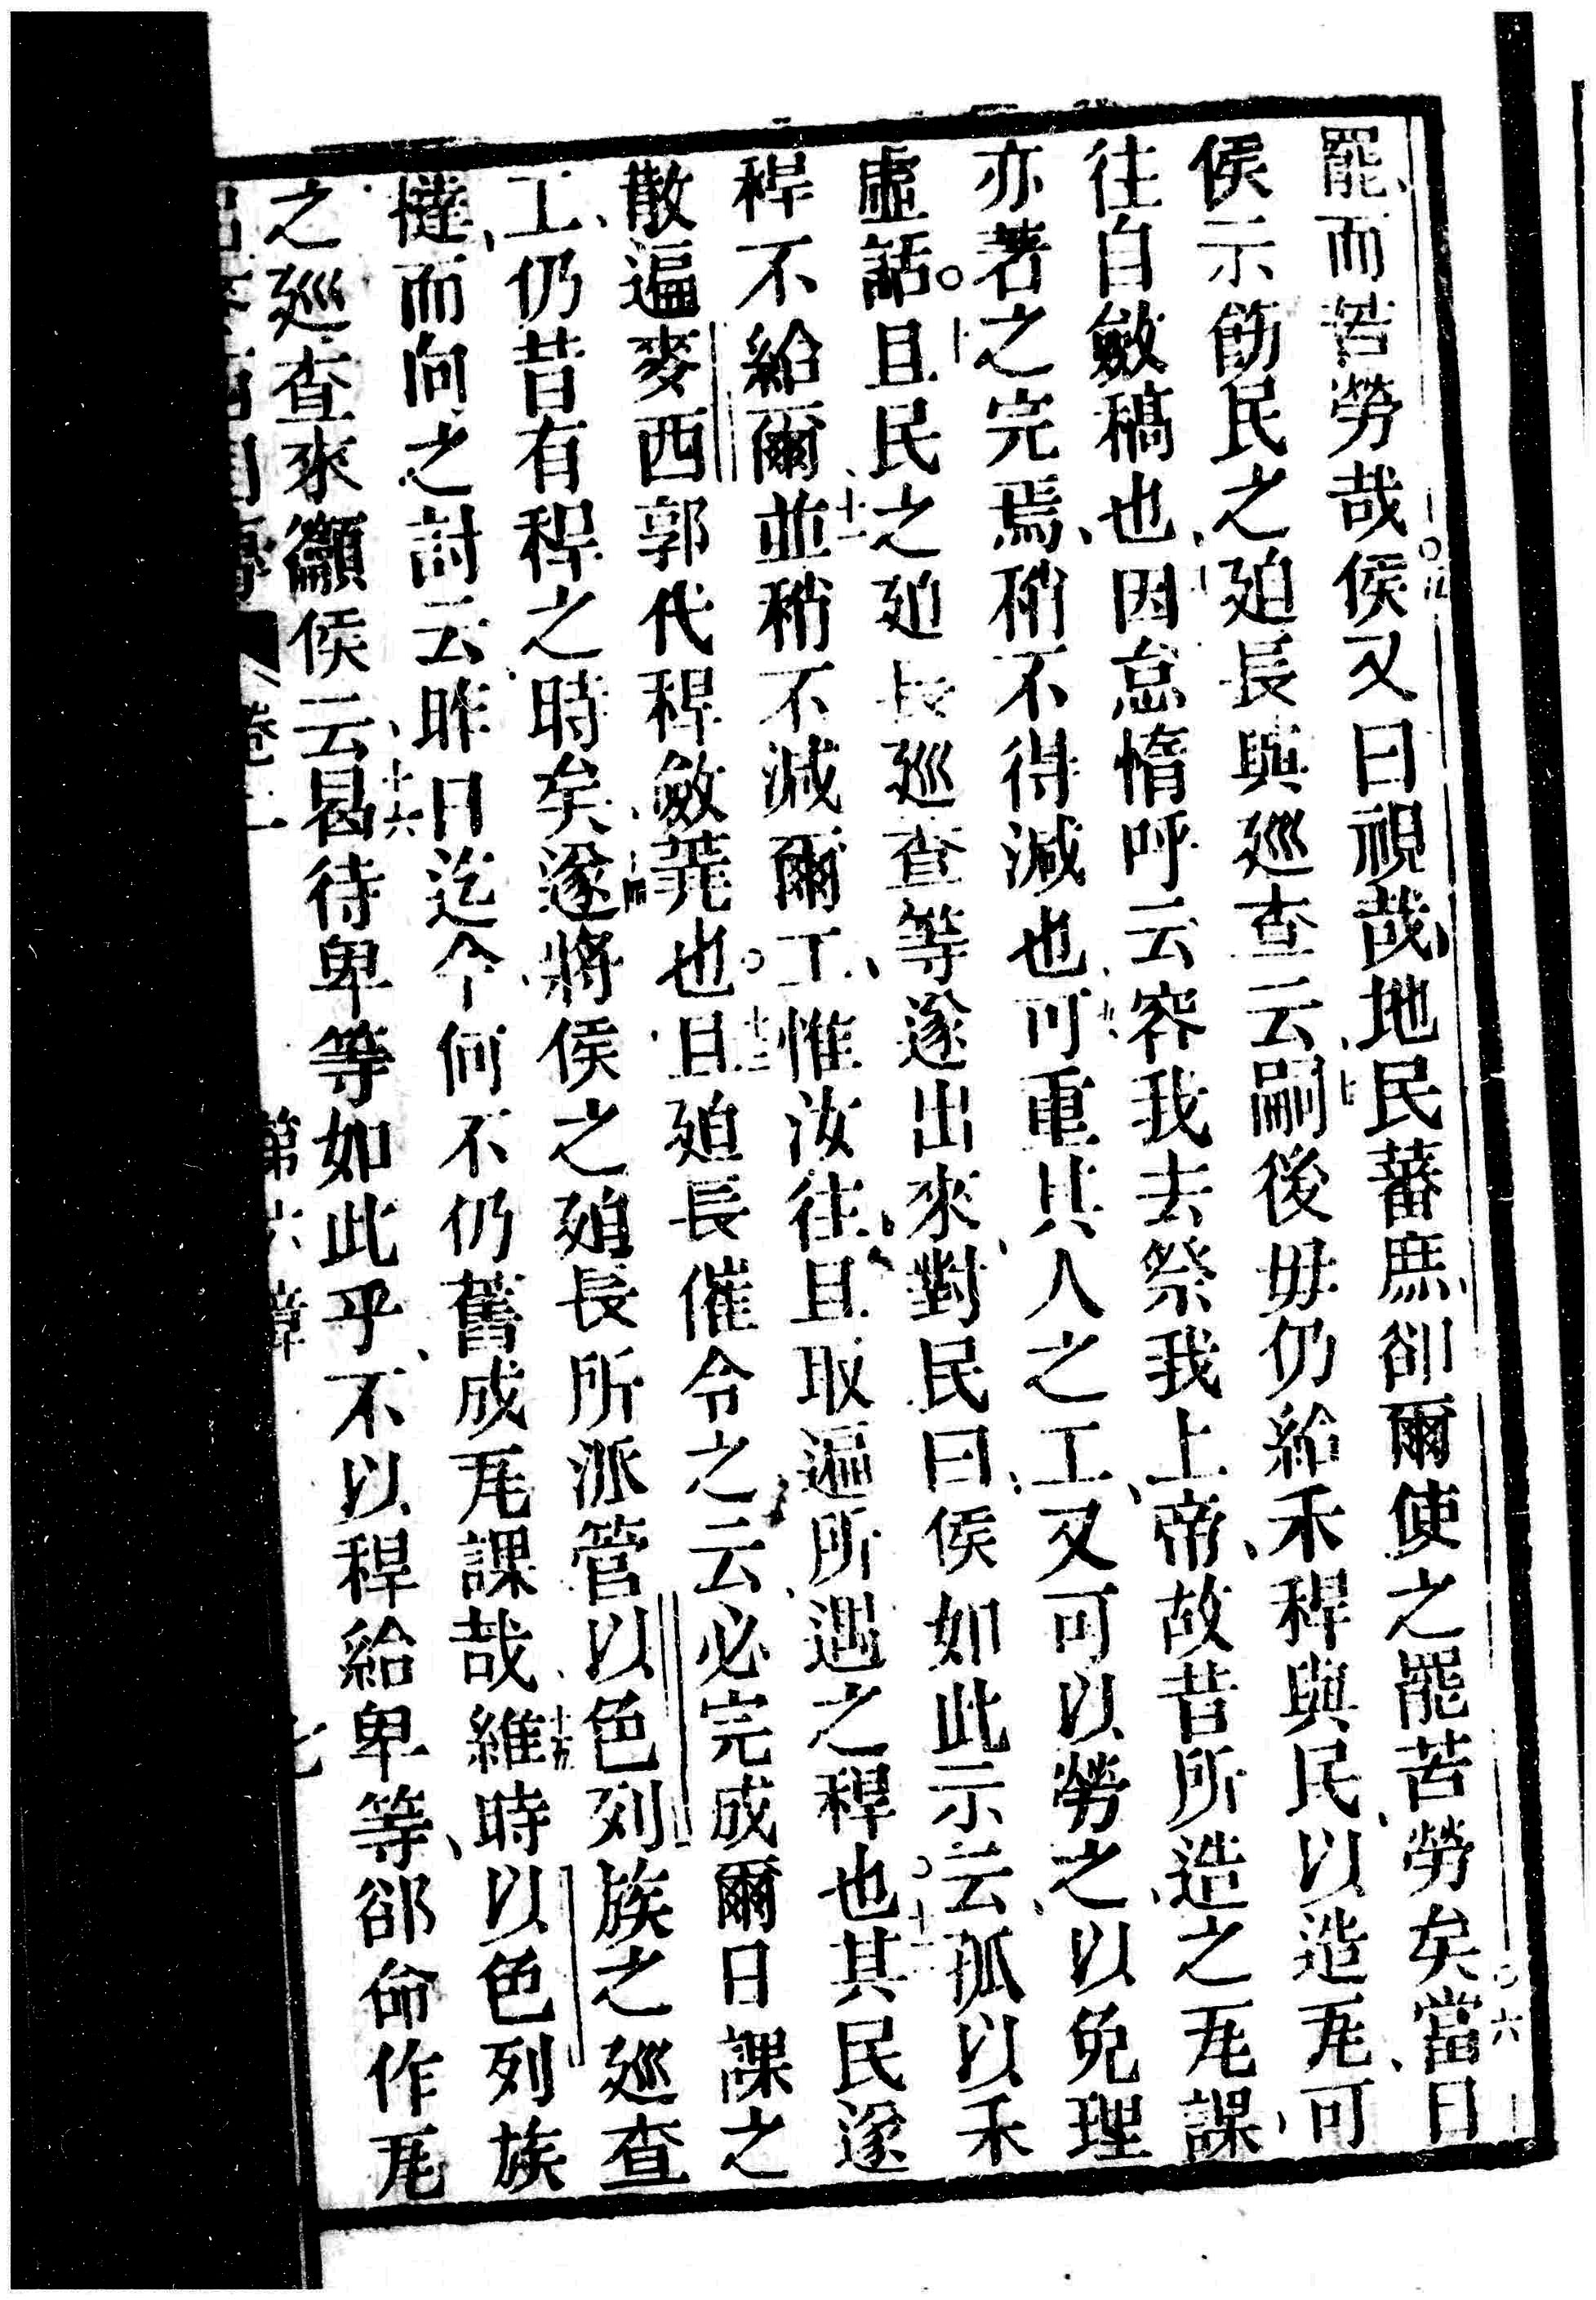 罷、而苦勞哉侯又曰視哉地民蕃庶、卻爾使之罷苦勞矣當日
侯示飭民之廹長與廵查云嗣後毋仍給禾稈與民、以造瓦、可
往自斂稿也、因怠惰呼云容我去祭我上帝、故昔所造之瓦課、
亦著之完焉、稍不得減也、可重其人之工、又可以勞之、以免理
虛話。且民之廹長廵查等遂出來、對民曰、侯如此示云、孤以禾
稈不給爾並稍不減爾工、惟汝往、且取遍所遇之稈也其民遂
散遍麥西郭代稈斂蕘也。且廹長催令之云、必完成爾日課之
工、仍昔有稈之時矣、遂將侯之廹長所派管以色列族之廵查
撻、而向之討云、昨日迄今、何不仍舊成瓦課哉、維時以色列族
之廵查來籲侯云、曷待卑等如此乎、不以稈給卑等、卻命作瓦
第六章
七